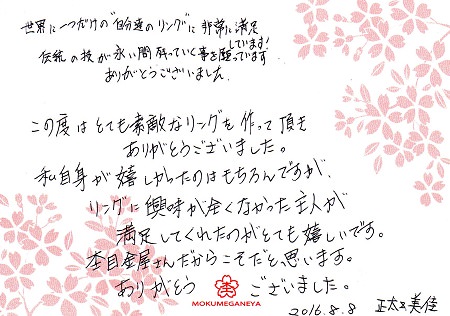 世界に一つだけの"自分達のリング"に非常に満足
しています!
伝統の技が永い間続っていく事を願っています
ありがとうございました
この度はとても素敵なリングを作って頂き
ありがとうございました。
私自身が嬉しかったのはもちろんですが、
リングに興味が全くなかった主人が
満足してくれたのがとても嬉しいです。
杢目金屋さんだからこそだと思います。
ありがとうございました。
MOKUMEGANEYA
2016.8.8 正太 美佳